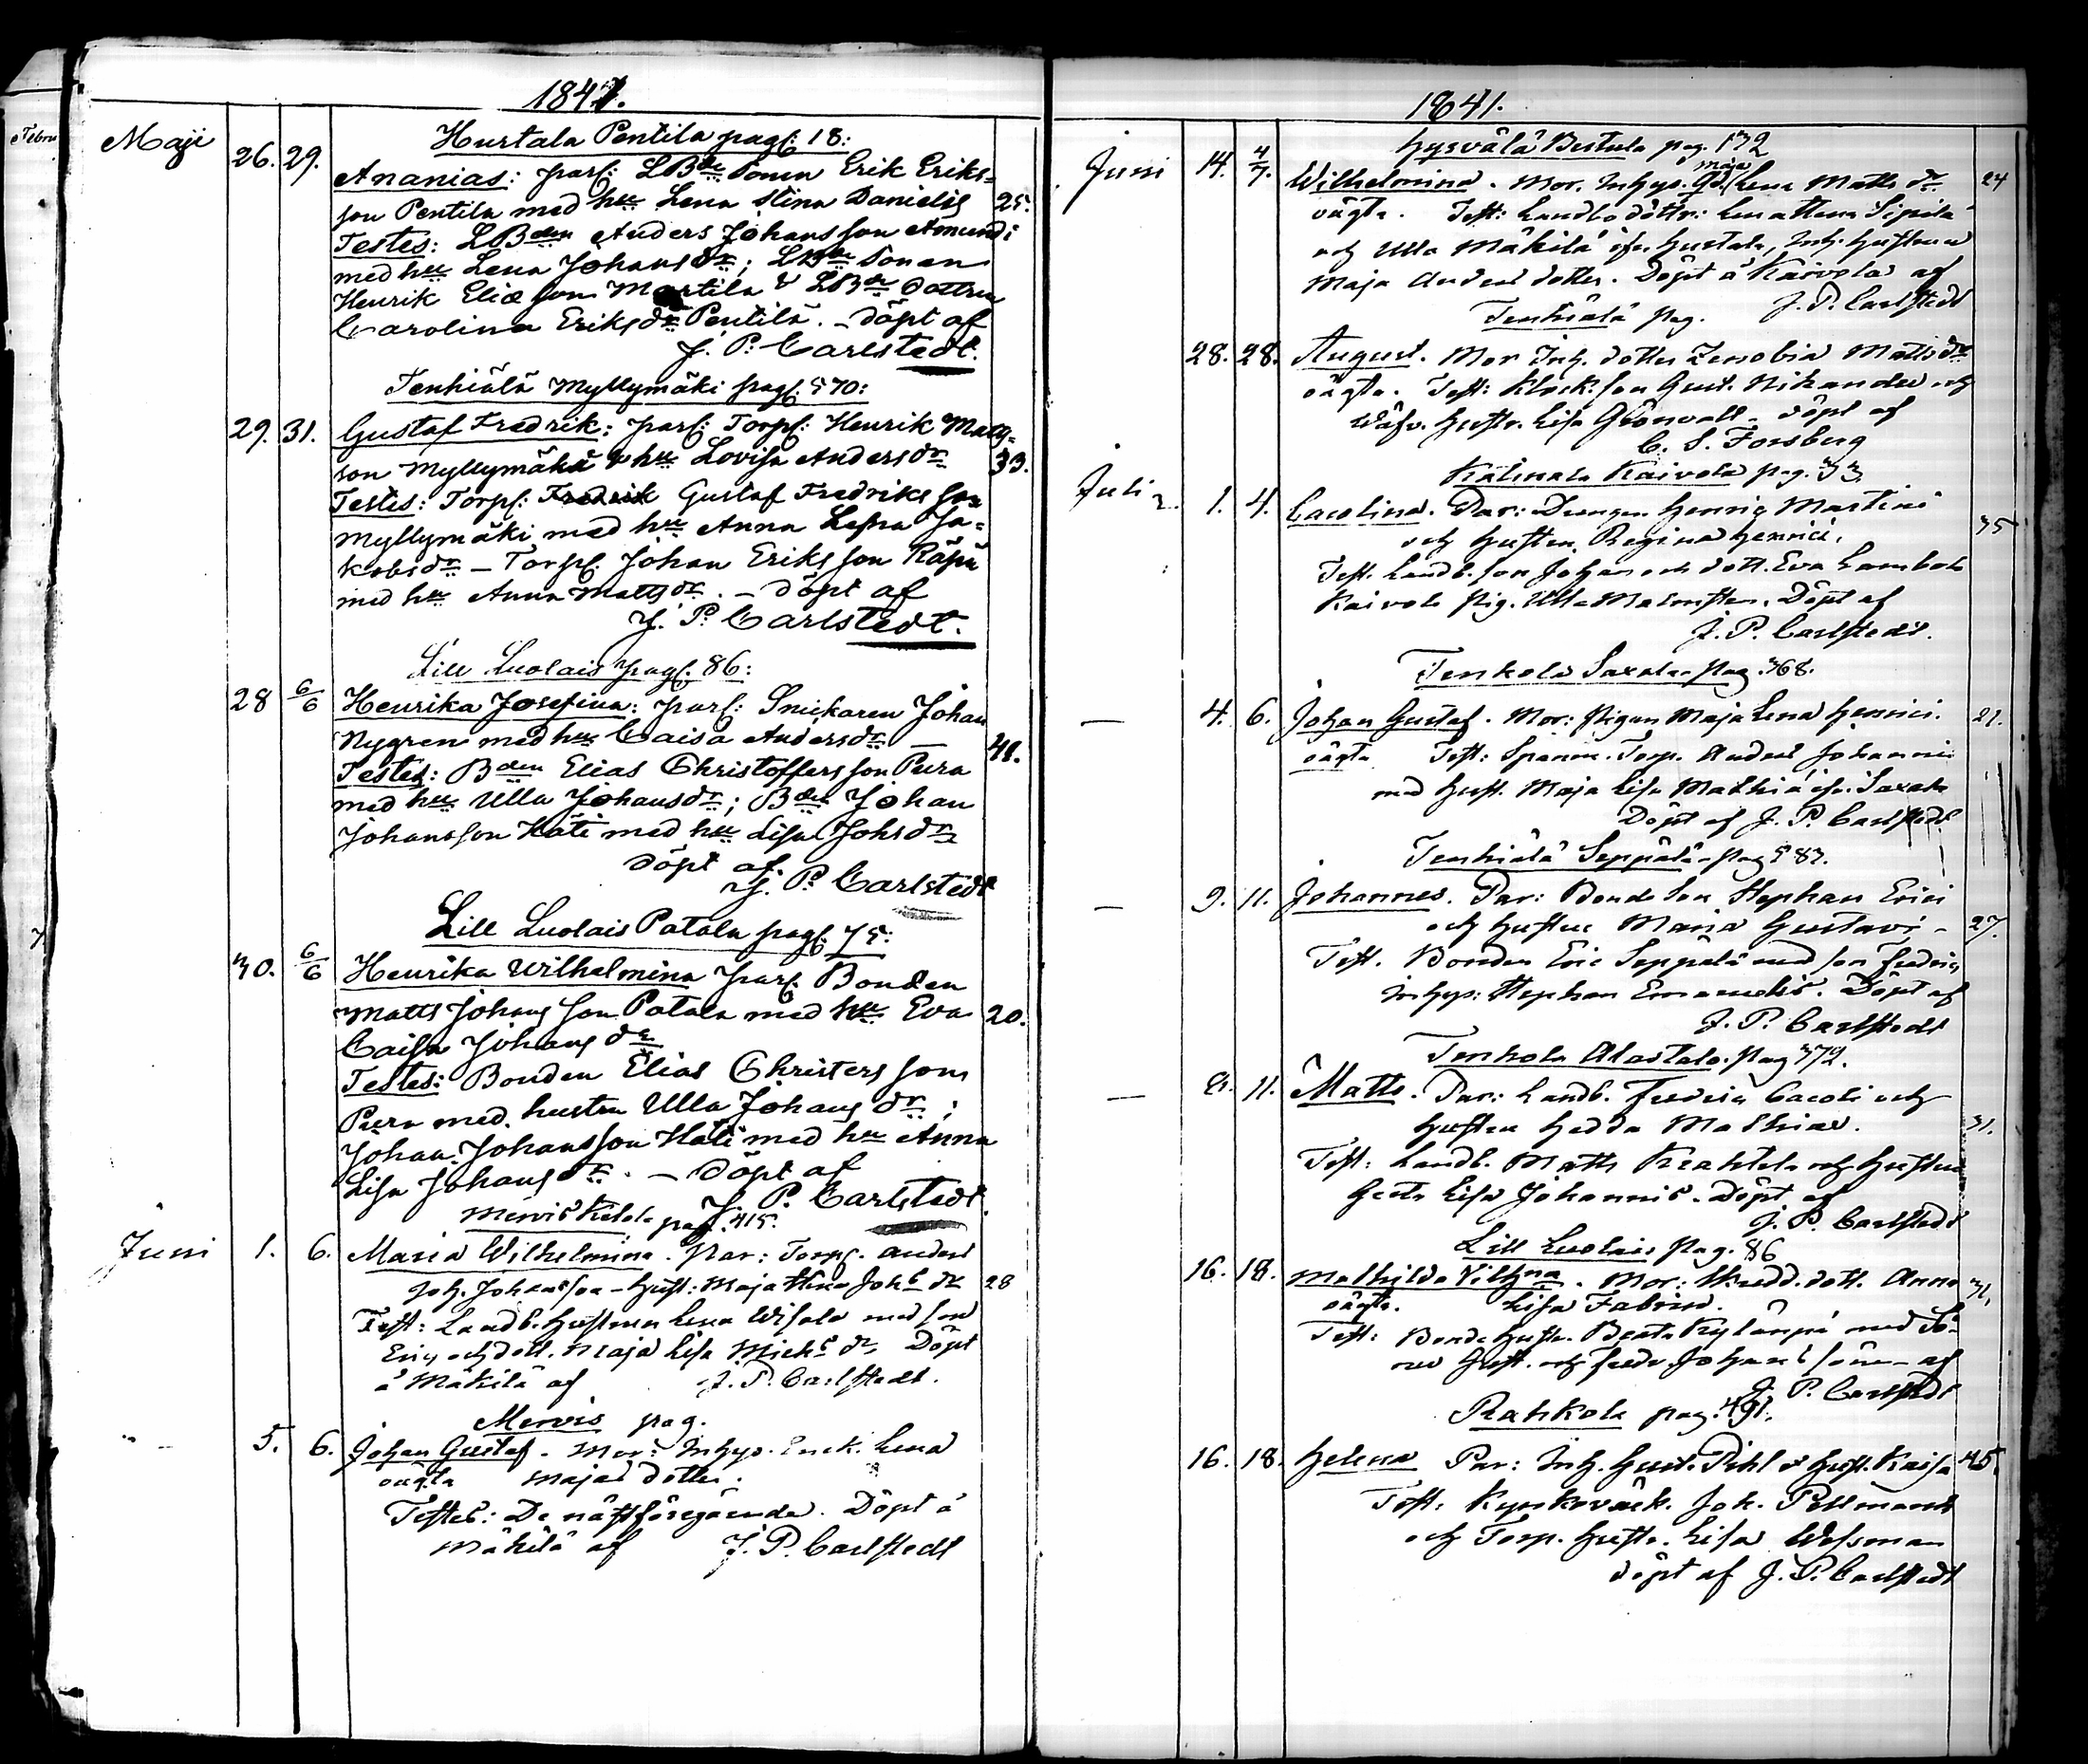 1841.
Maji
Hurtala Pentila pag: 18:
26. 29. Ananias: par: LBde Sonen Erik Eriks=
son Pentila med hu Lena Stina Danielsdr 25.
Testes: LBden Anders Johansson Amundi
med hu Lena Johansdr; LBde Sonen
Henrik Eliæ son Martila & LBde dottren
Carolina Eriksdr Pentilä. – döpt af
J. P. Carlstedt.
Tenhiälä Myllymäki pag: 570:
29. 31. Gustaf Fredrik: par: Torp: Henrik Matts=
son Myllymäki & hu Lovisa Andersdr 33.
Testes: Torp: Fredrik Gustaf Fredriksson
Myllymäki med hu Anna Lisa Ja=
kobsdr – Torp. Johan Eriksson Räpä
med hu Anna Mattsdr. – döpt af
J. P. Carlstedt.
Lill Luolais pag: 86:
28 6/6 Henrika Josefina: par: Snickaren Johan
Nygren med hu Caisa Andersdr – 41.
Testes: Bden Elias Christoffersson Pura
med hu Ulla Johansdr; Bden Johan
Johansson Hati med hu Lisa Johsdr
döpt af
J. P. Carlstedt
Lill Luolais Patala pag: 75:
30. 6/6 Henrika Wilhelmina par: Bonden
Matts Johansson Patala med hu Eva 20.
Caisa Johansdr
Testes: Bonden Elias Christersson
Pura med hustru Ulla Johansdr;
Johan Johansson Hati med hu Anna
Lisa Johansdr. – döpt af
J. P. Carlstedt.
Mervis Ketola pag. 415.
Juni 1. 6. Maria Wilhelmina. Par: Torp. Anders
Joh. Johansson – hust: Maja Stina Johs dr 28
Test: Landb. hustrun Lena Wisala med son
Eric och dott. Maja Lisa Michs dr, Döpt
å Mäkilä af J. P. Carlstedt.
Mervis pag.
" – 5. 6. Johan Gustaf. Mor: Inhys. Enck. Lena
oägta Majas dotter.
Testes: De nästföregående. Döpt å
Mäkilä af J. P. Carlstedt
1841.
Hyrvälä Bertula pag. 132
Juni 14. 4/7. Wilhelmina. Mor. Inhys. Maja Lena Matts dr 24
oägta. Test: Landbo döttr: Lena Stina Sipilä
och Ulla Mäkilä ifr. Hurtala, Inh. hustrun
Maja Anders dotter. Döpt å Kaivola af
J. P. Carlstedt
Tenhiälä pag.
28. 28. August. Mor Inh. dotter Zenobia Mattsdr
oägta. Test: Klock. son Gust. Nikander och
Wäfv. hustr. Lisa Grönvall. döpt af
C. S. Forsberg
Katinala Kaivola pag. 33.
Juli 1. 4. Carolina. Par: Drengen Henric Martini
och hustrun Regina Henrici. 35
Test. Landb. son Johan och dott. Eva Lambola
Kaivola pig. Ulla Malmsten. Döpt af
J. P. Carlstedt.
Tenkola Saxala pag. 368.
– 4. 6. Johan Gustaf. Mor: Pigan Maja Lena Henrici. 21.
oägta Test: Spanm. Torp. Anders Johannis
med hust. Maja Lisa Mathiæ ifr. Saxala
Döpt af J. P. Carlstedt
Tenhiälä Seppälä pag 583.
– 9. 11. Johannes. Par: Bonde Son Stephan Erici
och hustru Maria Gustavi – 27.
Test. Bonden Eric Seppälä med son Fredric
Inhys: Stephan Emanuelis. Döpt af
J. P. Carlstedt
Tenkola Alastalo. pag 372.
– 8. 11. Matts. Par: Landb. Fredric Caroli och
hustru Hedda Mathiæ. 31.
Test: Landb. Matts Krahtola och hustru
Greta Lisa Johannis. Döpt af
J. P. Carlstedt
Lill Luolais pag. 86
16. 18. Mathilda Vilhna. Mor: Skredd. dott. Anna 31,
oägta. Lisa Fabrin.
Test: Bonde hustr. Beata Kylänpä med Sö-
ner Gust. och Fredr. Johans söner – af
J. P. Carlstedt
Rahkola pag. 491.
16. 18. Helena Par: Inh. Gust. Pihl & hust. Kaisa 45.
Test: Kyrkoväck. Joh. Pellman
och Torp. hustr. Lisa Wessman
döpt af J. P. Carlstedt